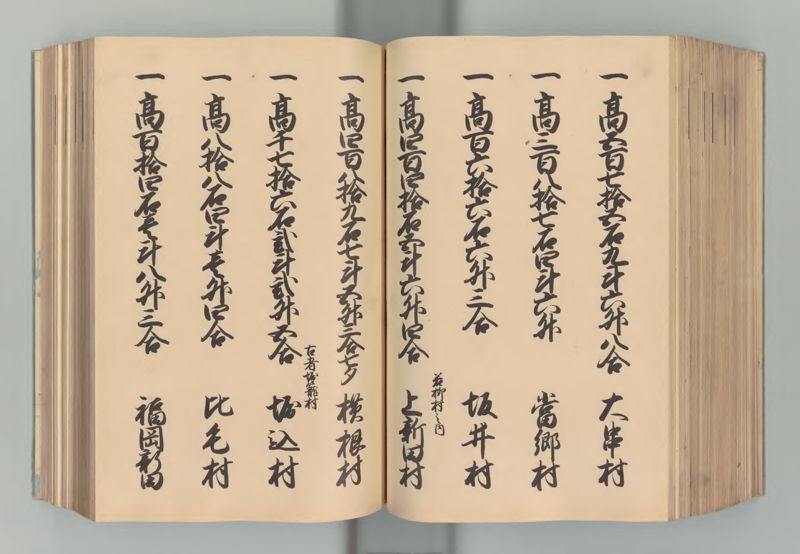 一 高五百七拾五石九斗六升八合 大串村
一 高三百八拾七石四斗六升 當郷村
一 高百六拾六石六升三合 坂井村
若柳村之内
一 高四百四拾石五斗六升四合 上新田村
一 高四百八拾九石七斗五升三合七夕 横根村
古者堀籠村
一 高千七拾六石弐斗弐升五合 堀込村
一 高八拾八石四斗壱升四合 比毛村
一 高百拾四石壱斗八升三合 福岡新田